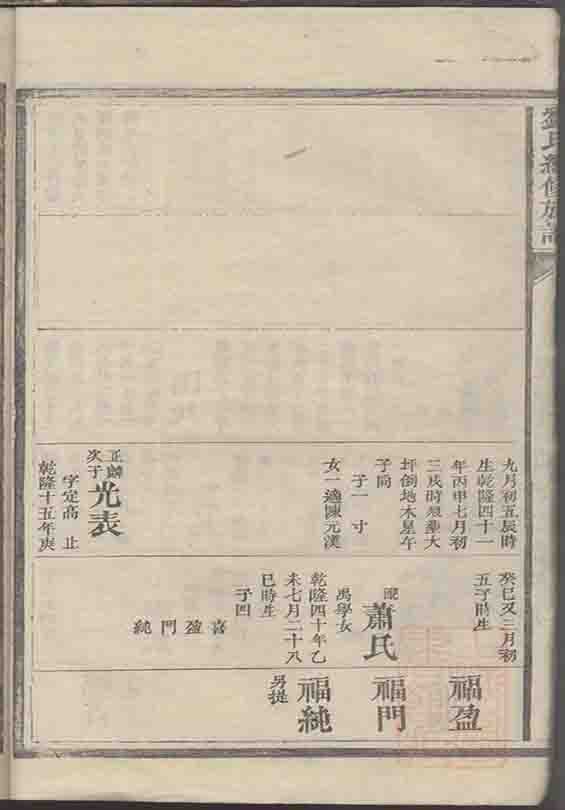 劉氏續修族譜
九月初五辰時
生乾隆四十一
年丙申七月初
三戌時歿葬大
坪倒地木星午
子向
子一 寸
女一適陳元漢
正麟
次子
光表
字定高 止
乾隆十五年庚
癸巳又三月初
五子時生
配
蕭氏
禹學女
乾隆四十年乙
未七月二十八
巳時生
子四
喜盈門純
福盈
福門
福純
另提